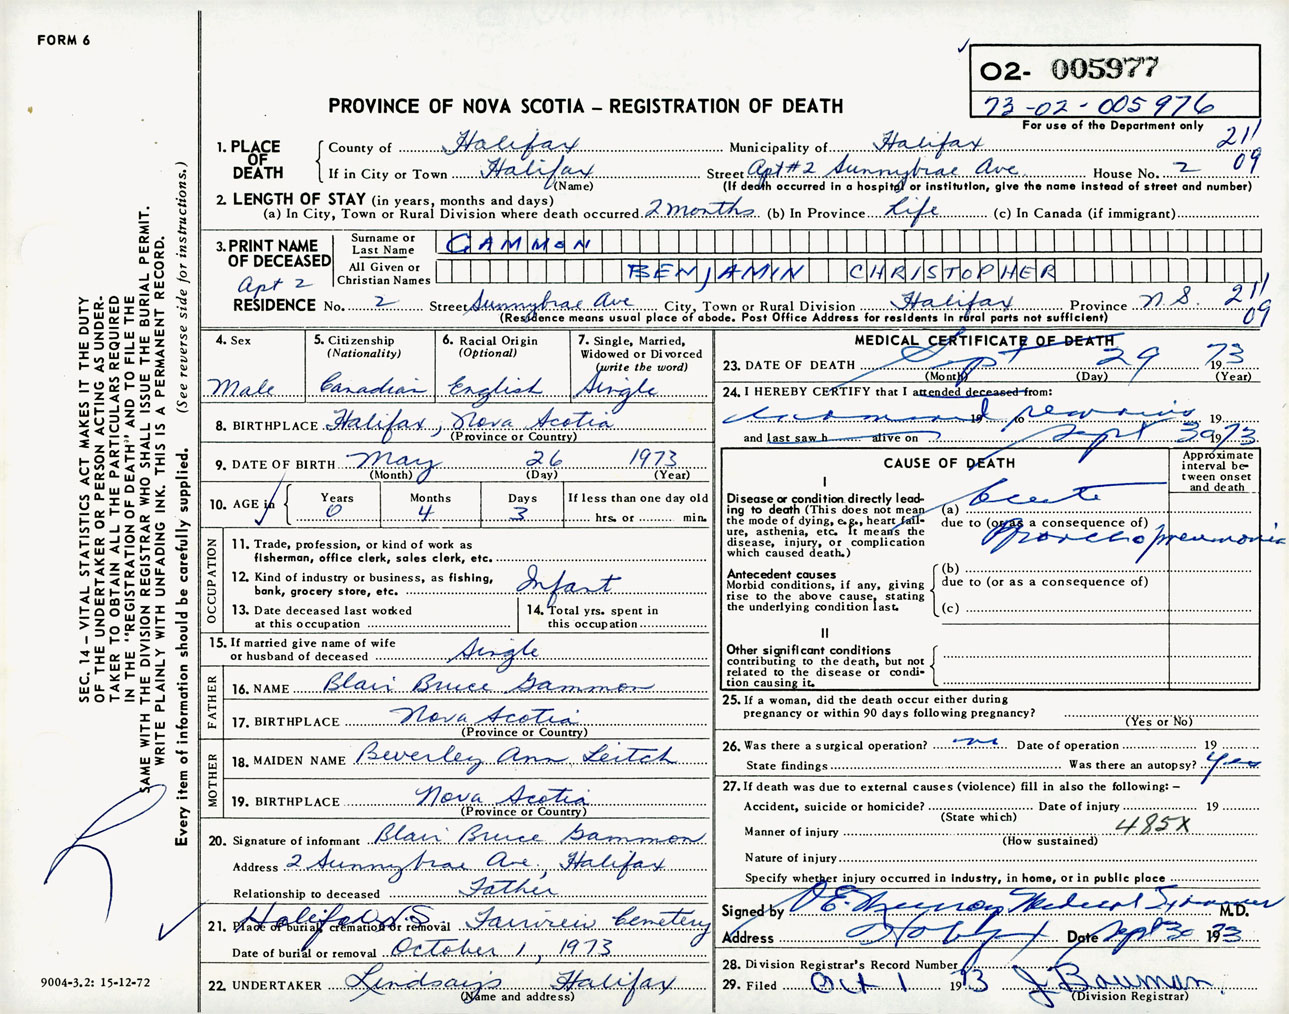 FORM 6
02- 005977
73-02-005976
For use of the Department only
PROVINCE OF NOVA SCOTIA – REGISTRATION OF DEATH
1. PLACE OF DEATH
County of Halifax Municipality of Halifax 21'
If in City or Town Halifax Street Apt #2 Sunnybrae Ave House No. 2 09
(Name) (If death occurred in a hospital or institution, give the name instead of street and number)
2. LENGTH OF STAY (in years, months and days)
(a) In City, Town or Rural Division where death occurred. 2 months (b) In Province Life (c) In Canada (if immigrant)
3. PRINT NAME OF DECEASED
Surname or Last Name GAMMON
All Given or Christian Names BENJAMIN CHRISTOPHER
Apt 2
RESIDENCE No. 2 Street Sunnybrae Ave City, Town or Rural Division Halifax Province N.S. 21' 09
(Residence means usual place of abode. Post Office Address for residents in rural parts not sufficient)
4. Sex Male
5. Citizenship (Nationality) Canadian
6. Racial Origin (Optional) English
7. Single, Married, Widowed or Divorced (write the word) Single
8. BIRTHPLACE Halifax, Nova Scotia
(Province or Country)
9. DATE OF BIRTH May 26 1973
(Month) (Day) (Year)
10. AGE in Years 0 Months 4 Days 3 If less than one day old
hrs. or min.
OCCUPATION
11. Trade, profession, or kind of work as fisherman, office clerk, sales clerk, etc.
12. Kind of industry or business, as fishing, bank, grocery store, etc. Infant
13. Date deceased last worked at this occupation
14. Total yrs. spent in this occupation
15. If married give name of wife or husband of deceased Single
FATHER
16. NAME Blair Bruce Gammon
17. BIRTHPLACE Nova Scotia
(Province or Country)
MOTHER
18. MAIDEN NAME Beverley Ann Leitch
19. BIRTHPLACE Nova Scotia
(Province or Country)
20. Signature of informant Blair Bruce Gammon
Address 2 Sunnybrae Ave, Halifax
Relationship to deceased Father
21. Place of burial, cremation or removal Halifax N.S Fairview Cemetery
Date of burial or removal October 1, 1973
22. UNDERTAKER Lindsay's Halifax
(Name and address)
MEDICAL CERTIFICATE OF DEATH
23. DATE OF DEATH Sept 29 1973
(Month) (Day) (Year)
24. I HEREBY CERTIFY that I attended deceased from:
19 to 19
and last saw h alive on Sept 30 1973
CAUSE OF DEATH
Approximate interval between onset and death
I
Disease or condition directly leading to death (This does not mean the mode of dying, e.g., heart failure, asthenia, etc. It means the disease, injury, or complication which caused death.)
(a) Acute
due to (or as a consequence of)
Bronchopneumonia
Antecedent causes
Morbid conditions, if any, giving rise to the above cause, stating the underlying condition last.
(b)
due to (or as a consequence of)
(c)
II
Other significant conditions
contributing to the death, but not related to the disease or condition causing it.
25. If a woman, did the death occur either during pregnancy or within 90 days following pregnancy?
(Yes or No)
26. Was there a surgical operation? no Date of operation 19
State findings Was there an autopsy? Yes
27. If death was due to external causes (violence) fill in also the following: –
Accident, suicide or homicide? Date of injury 19
(State which)
Manner of injury 485X
(How sustained)
Nature of injury
Specify whether injury occurred in industry, in home, or in public place
Signed by Medical M.D.
Address Date Sept 30 1973
28. Division Registrar's Record Number
29. Filed Oct 1 1973 J Bowman
(Division Registrar)
SEC. 14 – VITAL STATISTICS ACT MAKES IT THE DUTY
OF THE UNDERTAKER OR PERSON ACTING AS UNDER-
TAKER TO OBTAIN ALL THE PARTICULARS REQUIRED
IN THE "REGISTRATION OF DEATH" AND TO FILE THE
SAME WITH THE DIVISION REGISTRAR WHO SHALL ISSUE THE BURIAL PERMIT.
WRITE PLAINLY WITH UNFADING INK. THIS IS A PERMANENT RECORD.
Every item of information should be carefully supplied. (See reverse side for instructions.)
9004-3.2: 15-12-72